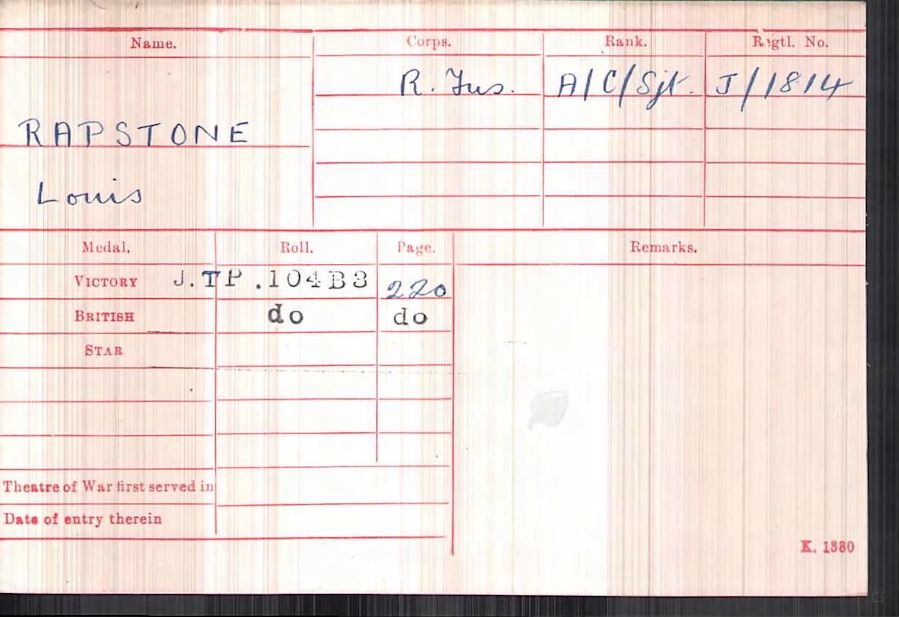 Name. Corps. Rank. Regtl. No.
R. Fus. A/C/Sjt. J/1814
RAPSTONE
Louis
Medal. Roll. Page. Remarks.
VICTORY J.TP.104B3 220
BRITISH do do
STAR
Theatre of War first served in
Date of entry therein
K. 1380